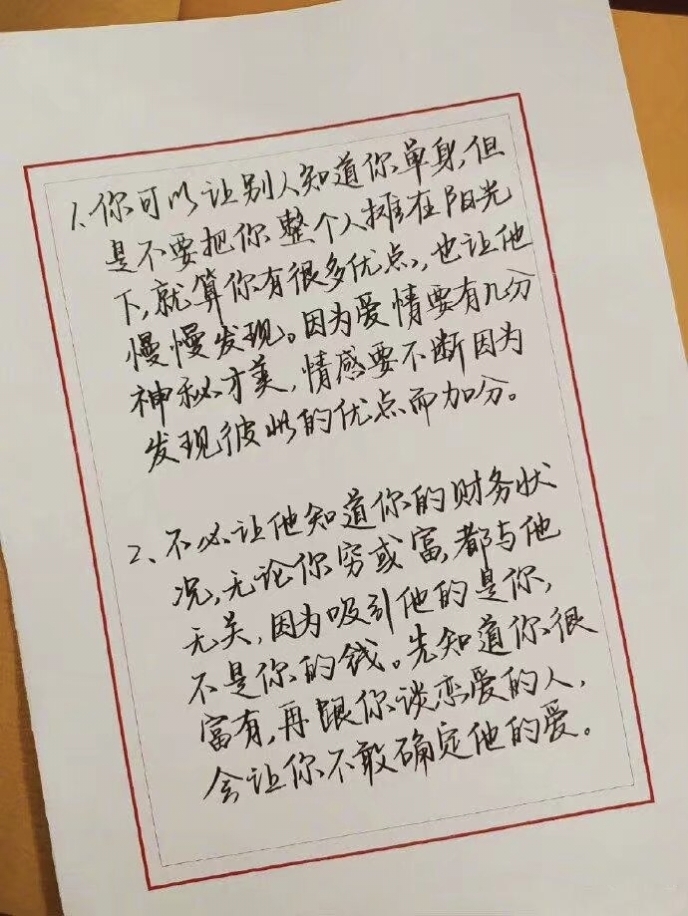 1.你可以让别人知道你单身,但
是不要把你整个人摊在阳光
下,就算你有很多优点,也让他
慢慢发现。因为爱情要有几分
神秘才美,情感要不断因为
发现彼此的优点而加分。
2、不必让他知道你的财务状
况,无论你穷或富,都与他
无关,因为吸引他的是你,
不是你的钱。先知道你很
富有,再跟你谈恋爱的人,
会让你不敢确定他的爱。